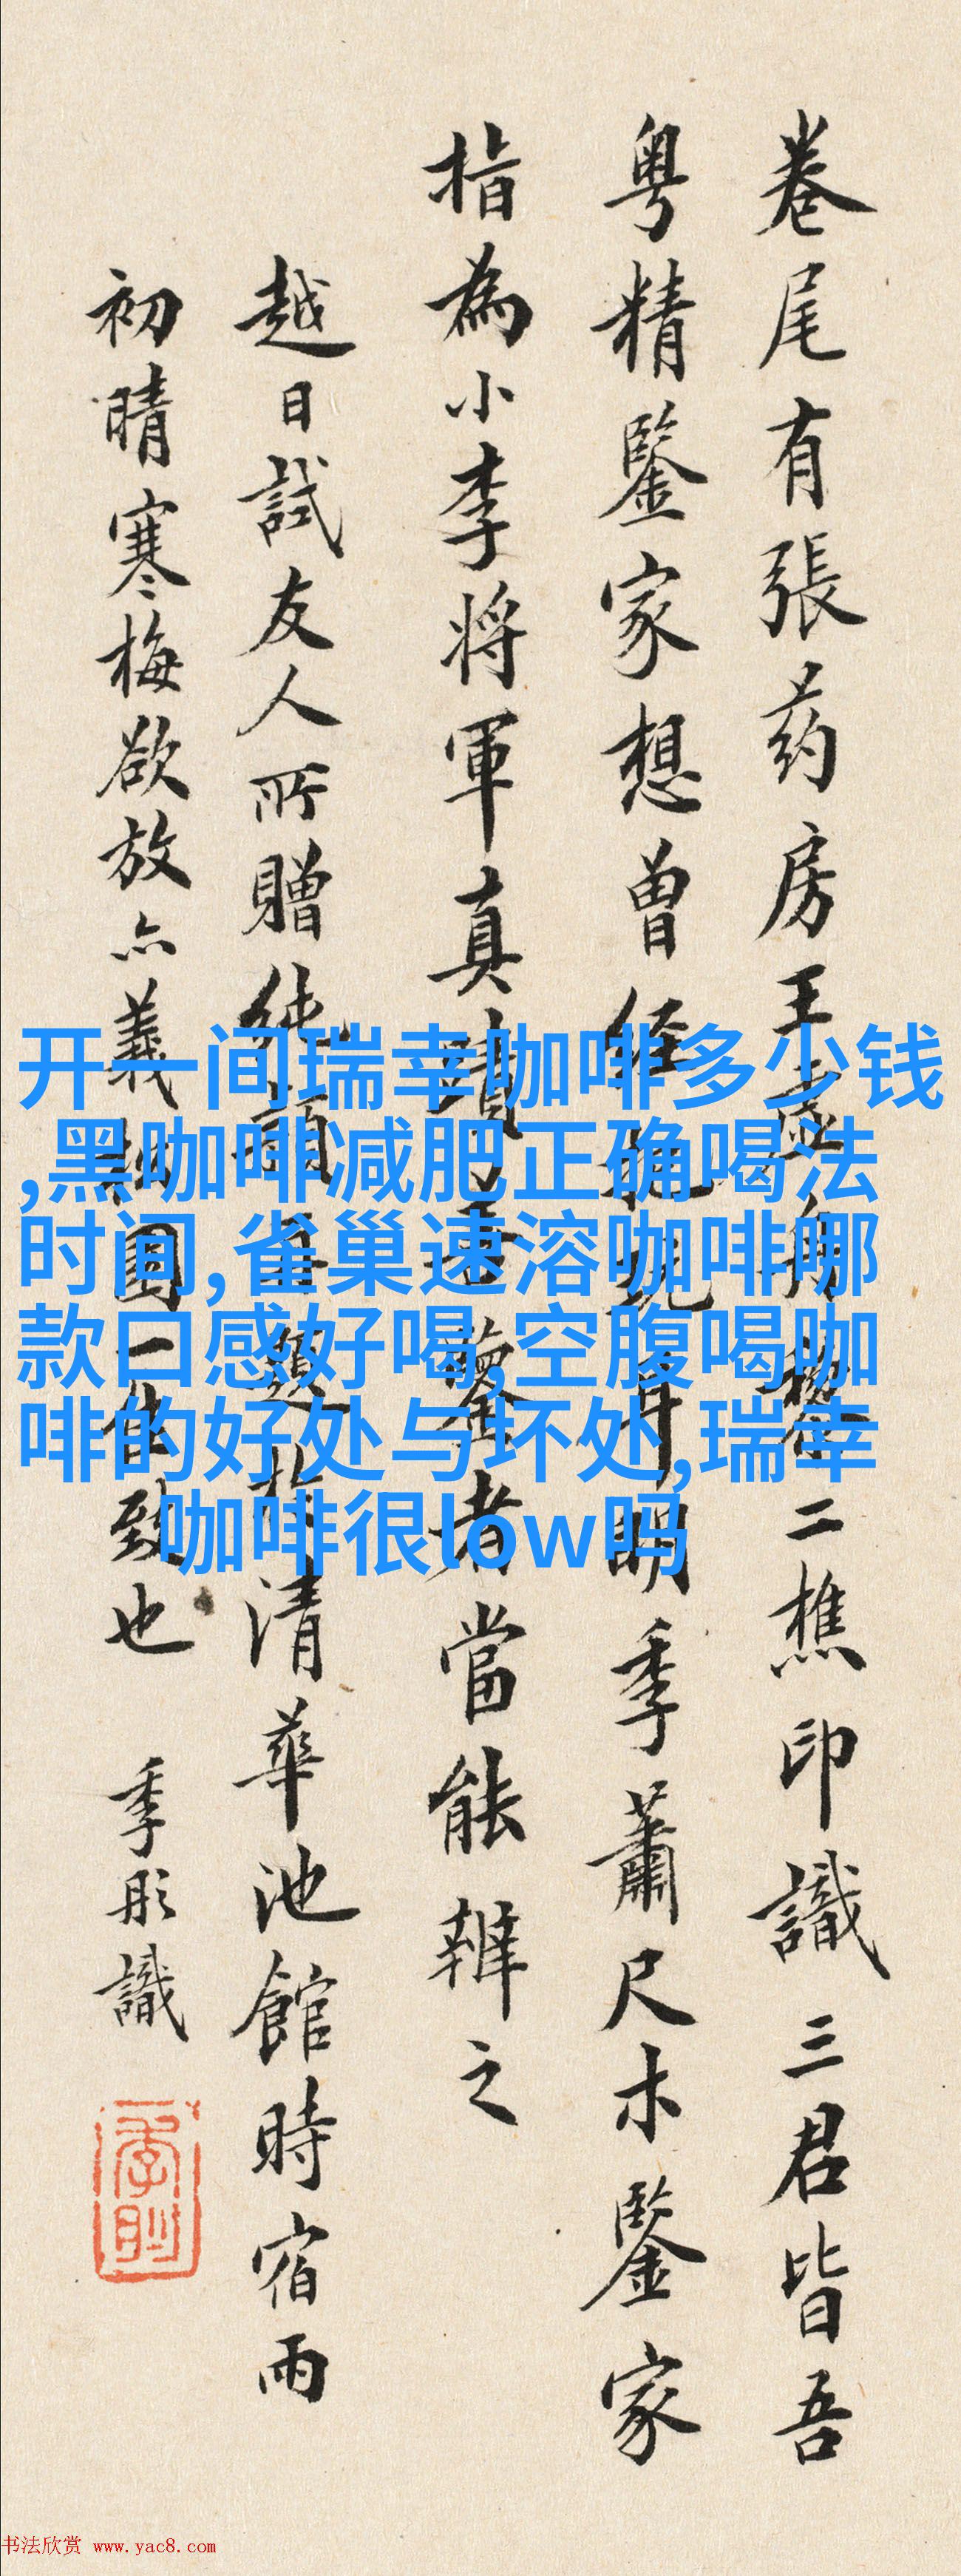 卷尾有張药房王虚舟二樵印識三君皆吾
粤精鑒家想曾经明季蕭尺木鑒家
指為小李将軍真蹟鑒者當能辨之
越日試友人所贈題清華池館時宿雨
初晴寒梅欲放亦圓一佳致也 季彤識
开一间瑞幸咖啡多少钱
,黑咖啡减肥正确喝法
时间,雀巢速溶咖啡哪
款口感好喝,空腹喝咖
啡的好处与坏处,瑞幸
咖啡很low吗
书法欣赏 www.yac8.com